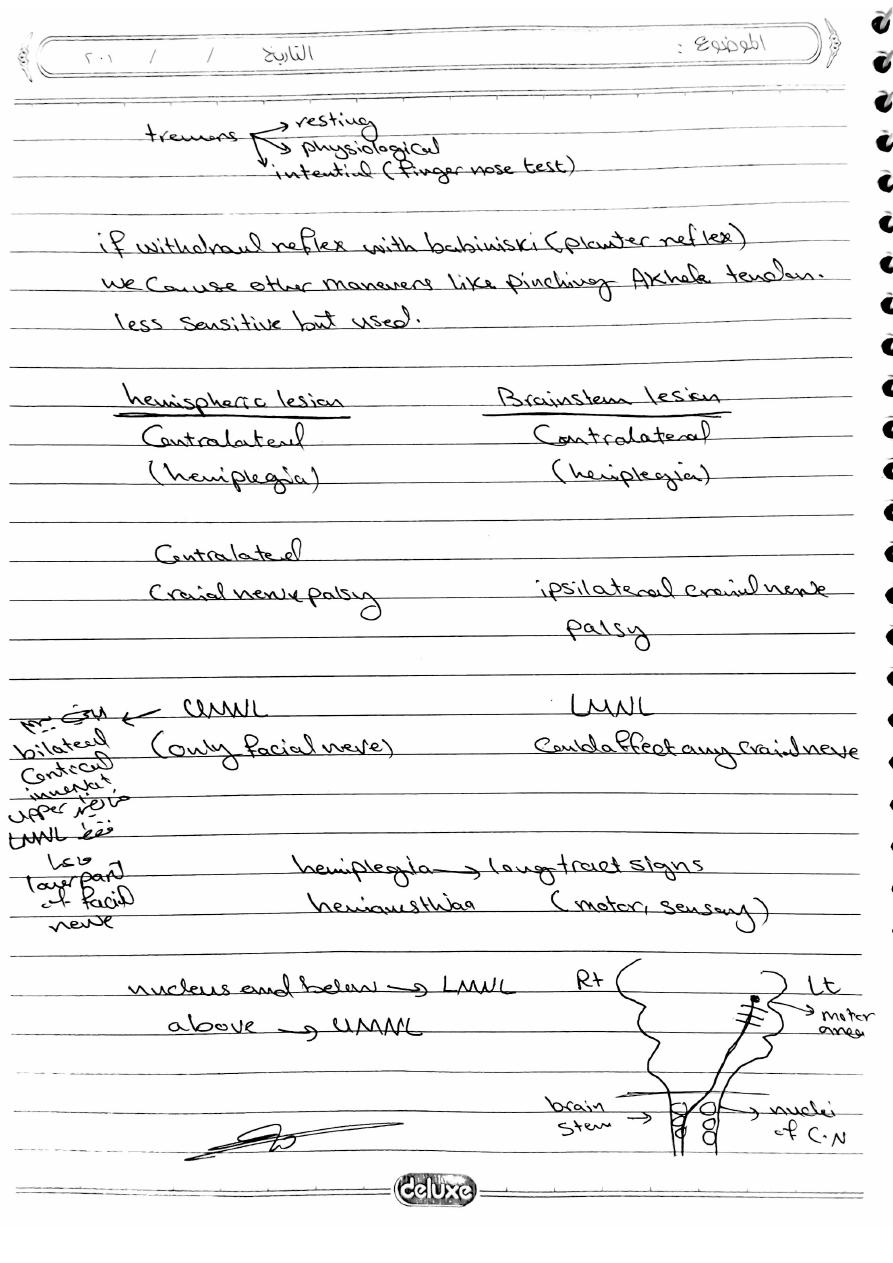 الموضوع :
التاريخ / / ٢٠١
tremors → resting
→ physiological
intential (finger nose test)
if withdraul reflex with babiniski (planter reflex)
we can use other manevers like pinching Akhele tendon.
less sensitive but used.
hemispheric lesion
Contralaterul
(hemiplegia)
Contralateral
Cranial nerve palsy
UMNL
(only facial nerve)
Brainstem lesion
Contralateral
(hemiplegia)
ipsilateral cranial nerve
palsy
LMNL
Could affect any cranial nerve
bilateral
Cortical
innervat.
upper
LMNL فقط
lower part
of facial
nerve
hemiplegia → long tract signs
hemianesthiaa (motor, sensory)
nucleus and below → LMNL
above → UMNL
Rt
Lt
motor
area
brain
stem →
→ nuclei
of C.N
deluxe